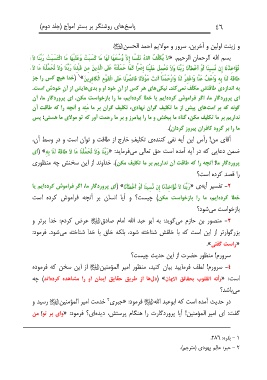 ۴۶
پاسخ‌های روشنگر بر بستر امواج (جلد دوم)
و زینت اولین و آخرین، سرور و مولایم احمد الحسن
بسم الله الرحمن الرحیم. «لا یُکَلِّفُ اللهُ نَفْساً إِلاَّ وُسْعَهَا لَهَا مَا کَسَبَتْ وَعَلَیْهَا مَا اکْتَسَبَتْ رَبَّنَا لا
تُؤَاخِذْنَا إِنْ نَسِینَا أَوْ أَخْطَأْنَا رَبَّنَا وَلا تَحْمِلْ عَلَیْنَا إِصْراً کَمَا حَمَلْتَهُ عَلَى الَّذِینَ مِنْ قَبْلِنَا رَبَّنَا وَلا تُحَمِّلْنَا مَا لا
طَاقَةَ لَنَا بِهِ وَاعْفُ عَنَّا وَاغْفِرْ لَنَا وَارْحَمْنَا أَنْتَ مَوْلانَا فَانْصُرْنَا عَلَى الْقَوْمِ الْکَافِرِینَ»¹ (خدا هیچ کس را جز
به اندازه‌ی طاقتش مکلف نمی‌کند. نیکی‌های هر کس از آن خود او و بدی‌هایش از آن خودش است.
ای پروردگار ما، اگر فراموش کرده‌ایم یا خطا کرده‌ایم، ما را بازخواست مکن. ای پروردگار ما، آن
گونه که بر امت‌های پیش از ما تکلیف گران نهادی، تکلیف گران بر ما منه و آنچه را که طاقت آن
نداریم بر ما تکلیف مکن، گناه ما ببخش و ما را بیامرز و بر ما رحمت آور که تو مولای ما هستی؛ پس
ما را بر گروه کافران پیروز گردان).
آقای من! رأس این آیه نفی کننده‌ی تکلیف خارج از طاقت و توان است و در وسط آن،
ضمن دعایی که در آیه آمده است حق تعالی می‌فرماید: «رَبَّنَا وَلا تُحَمِّلْنَا مَا لا طَاقَةَ لَنَا بِهِ» (ای
پروردگار ما! آنچه را که طاقت آن نداریم بر ما تکلیف مکن). خداوند از این سخنش چه منظوری
را قصد کرده است؟
۲- تفسیر آیه‌ی «رَبَّنَا لا تُؤَاخِذْنَا إِنْ نَسِینَا أَوْ أَخْطَأْنَا» (ای پروردگار ما، اگر فراموش کرده‌ایم یا
خطا کرده‌ایم، ما را بازخواست مکن) چیست؟ و آیا انسان بر آنچه فراموش کرده است
بازخواست می‌شود؟
۳- منصور بن حازم می‌گوید: به ابو عبد الله امام صادق عرض کردم: خدا برتر و
بزرگوارتر از این است که با خلقش شناخته شود، بلکه خلق با خدا شناخته می‌شود. فرمود:
«راست گفتی».
سرورم! منظور حضرت از این حدیث چیست؟
۴- سرورم! لطف فرمایید بیان کنید، منظور امیر المؤمنین از این سخن که فرموده
است: «رأته القلوب بحقائق الایمان» (دل‌ها از طریق حقایق ایمان او را مشاهده کرده‌اند) چه
می‌باشد؟
در حدیث آمده است که ابوعبد الله فرمود: «حِبری² خدمت امیر المؤمنین رسید و
گفت: ای امیر المؤمنین! آیا پروردگارت را هنگام پرستش، دیده‌ای؟ فرمود: «وای بر تو! من
۱- بقره: ۲۸۶.
۲- حبر: عالم یهودی (مترجم).